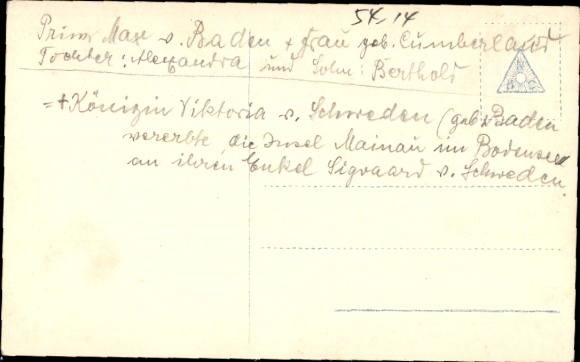 54,14
Prinz Max v. Baden + Frau geb. Cumberland
Tochter: Alexandra und Sohn: Berthold
= + Königin Viktoria v. Schweden (geb. v. Baden
vererbte die Insel Mainau im Bodensee
an ihren Enkel Sigvaard v. Schweden.